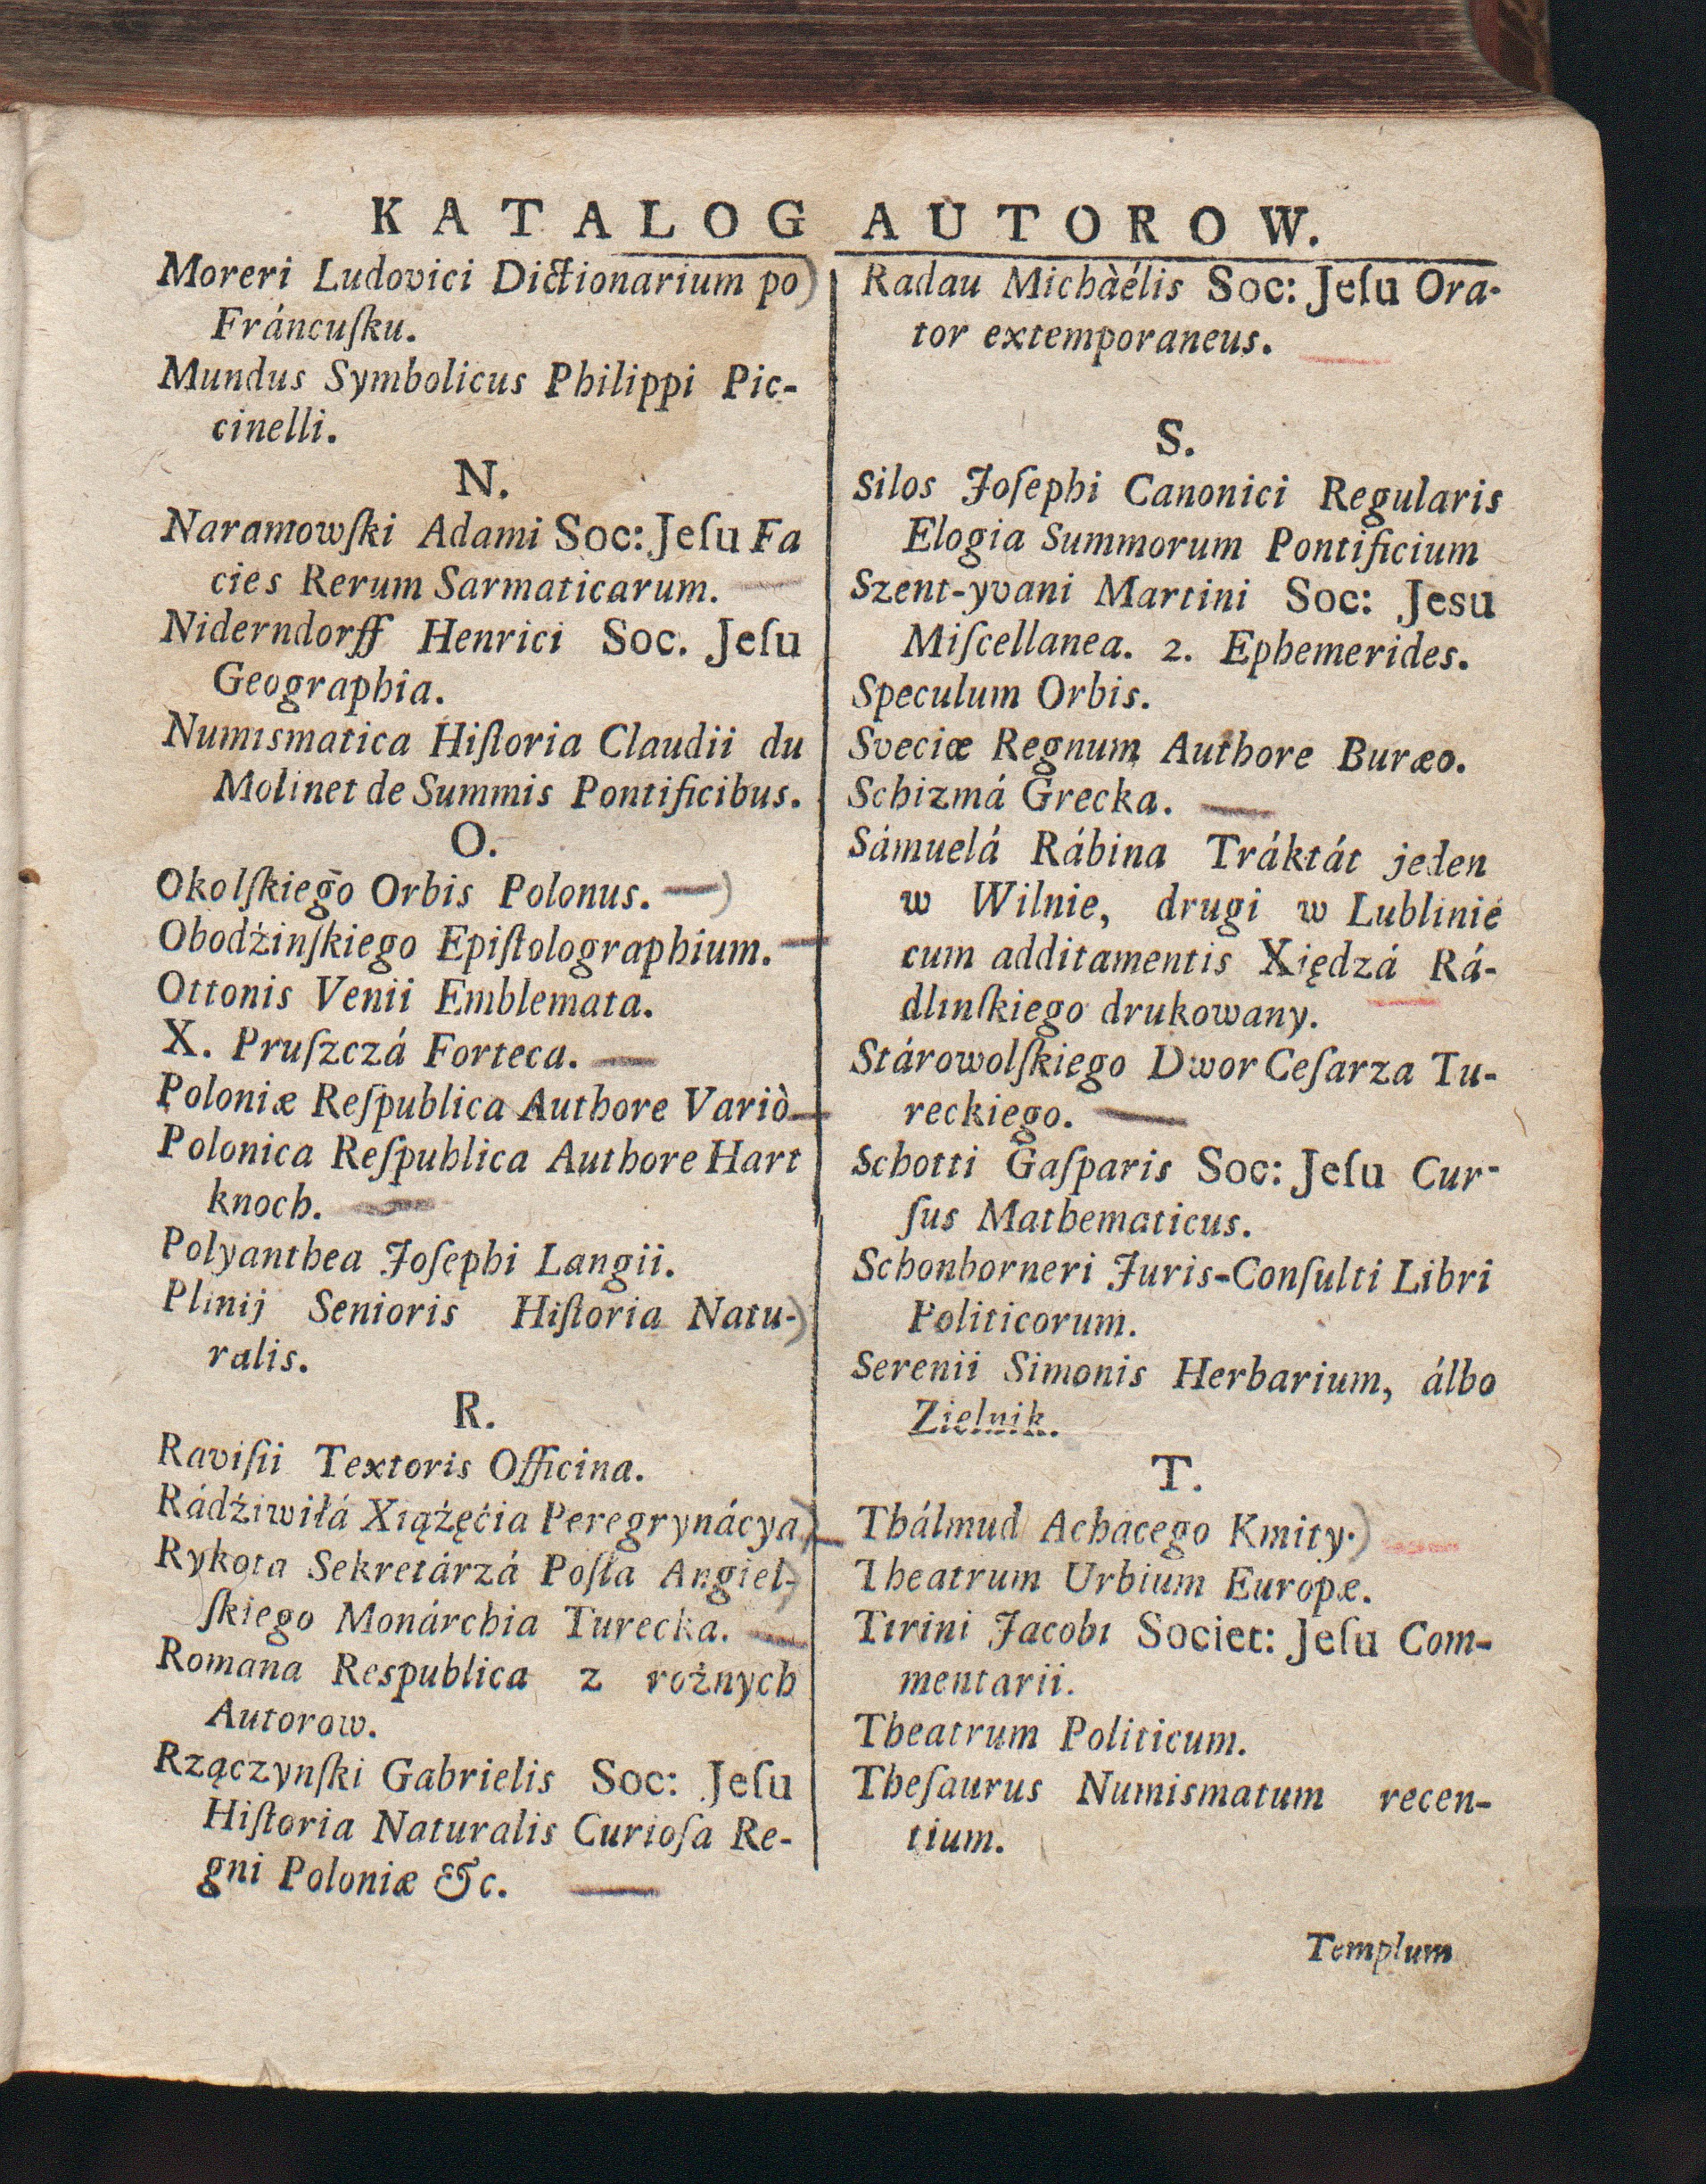 KATALOG AUTOROW.
Moreri Ludovici Dictionarium po
Fráncuſku.
Mundus Symbolicus Philippi Pic-
cinelli.
N.
Naramowſki Adami Soc: Jeſu Fa
cies Rerum Sarmaticarum.
Niderndorff Henrici Soc. Jeſu
Geographia.
Numismatica Hiſtoria Claudii du
Molinet de Summis Pontificibus.
O.
Okolſkiego Orbis Polonus.
Obodźinſkiego Epiſtolographium.
Ottonis Venii Emblemata.
X. Pruſzczá Forteca.
Poloniæ Reſpublica Authore Variò
Polonica Reſpublica Authore Hart
knoch.
Polyanthea Joſephi Langii.
Plinij Senioris Hiſtoria Natu-
ralis.
R.
Raviſii Textoris Officina.
Rádźiwiłá Xiążęćia Peregrynácya
Rykota Sekretárzá Poſła Angiel-
ſkiego Monárchia Turecka.
Romana Respublica z rożnych
Autorow.
Rzączynſki Gabrielis Soc: Jeſu
Hiſtoria Naturalis Curioſa Re-
gni Poloniæ &c.
Radau Michàélis Soc: Jeſu Ora-
tor extemporaneus.
S.
Silos Joſephi Canonici Regularis
Elogia Summorum Pontificium
Szent-yvani Martini Soc: Jesu
Miſcellanea. 2. Ephemerides.
Speculum Orbis.
Sveciæ Regnum Authore Buræo.
Schizmá Grecka.
Sámuelá Rábina Tráktát jeden
w Wilnie, drugi w Lublinie
cum additamentis Xiędzá Rá-
dlinſkiego drukowany.
Stárowolſkiego Dwor Ceſarza Tu-
reckiego.
Schotti Gaſparis Soc: Jeſu Cur-
ſus Mathematicus.
Schonborneri Juris-Conſulti Libri
Politicorum.
Serenii Simonis Herbarium, álbo
Zielnik.
T.
Thálmud Achacego Kmity.
Theatrum Urbium Europæ.
Tirini Jacobi Societ: Jeſu Com-
mentarii.
Theatrum Politicum.
Theſaurus Numismatum recen-
tium.
Templum